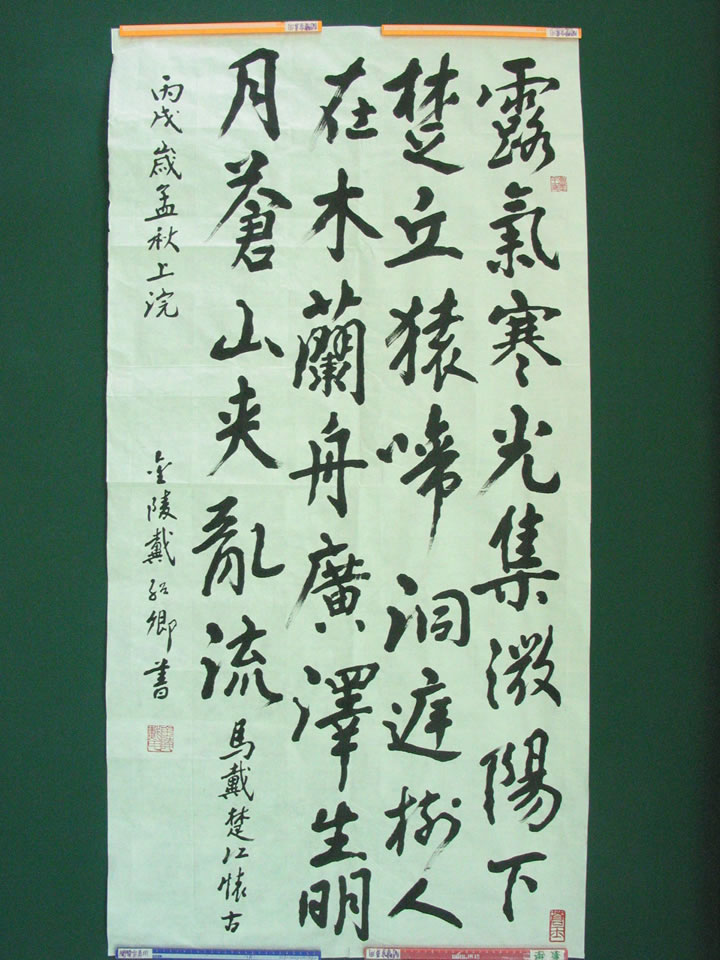 露氣寒光集微陽下
楚丘猿啼洞庭樹人
在木蘭舟廣澤生明
月蒼山夾亂流
馬戴楚江懷古
丙戌歲孟秋上浣
金陵戴紹卿書